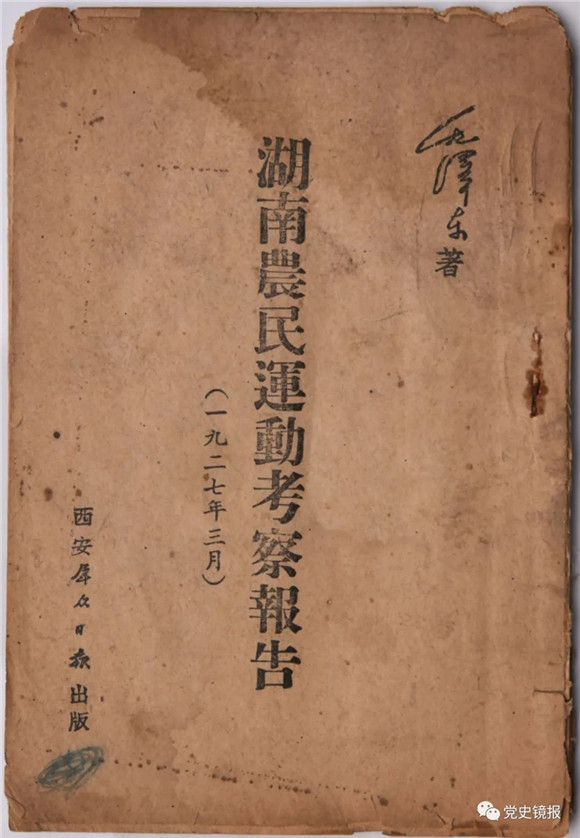 毛澤东著
湖南農民運動考察報告
(一九二七年三月)
西安群众日报出版
党史镜报